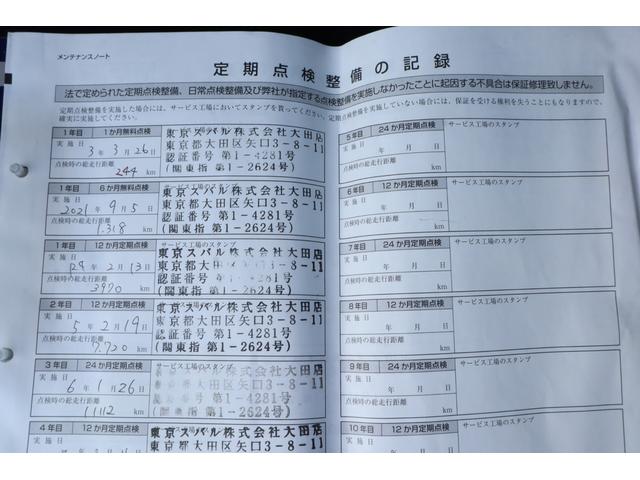 メンテナンスノート
定期点検整備の記録
法で定められた定期点検整備、日常点検整備及び弊社が指定する点検整備を実施しなかったことに起因する不具合は保証修理致しません。
定期点検整備を実施した場合には、サービス工場においてスタンプを貰ってください。定期点検整備を実施していない場合には、保証を受ける権利を失うこともなりますので、
確実に実施してください。
1年目 1か月無料点検
実施日 3年3月26日
点検時の総走行距離
244 km
東京スバル株式会社大田店
東京都大田区矢口3-8-11
認証番号 第1-4281号
(関東指 第1-2624号)
1年目 6か月無料点検
実施日 2021年9月5日
点検時の総走行距離
1,318 km
東京スバル株式会社大田店
東京都大田区矢口3-8-11
認証番号 第1-4281号
(関東指 第1-2624号)
1年目 12か月定期点検
サービス工場のスタンプ
実施日 年2月13日
点検時の総走行距離
3970 km
東京スバル株式会社大田店
東京都大田区矢口3-8-11
認証番号 第1-4281号
(関東指 第1-2624号)
2年目 12か月定期点検
実施日 5年2月19日
点検時の総走行距離
7,720 km
東京スバル株式会社大田店
東京都大田区矢口3-8-11
認証番号 第1-4281号
(関東指 第1-2624号)
3年目 24か月定期点検
サービス工場のスタンプ
実施日 6年1月26日
点検時の総走行距離
11112 km
東京スバル株式会社大田店
東京都大田区矢口3-8-11
認証番号 第1-4281号
(関東指 第1-2624号)
4年目 12か月定期点検
東京スバル株式会社大田店
東京都大田区矢口3-8-11
5年目 24か月定期点検
サービス工場のスタンプ
実施日 年 月 日
点検時の総走行距離
km
6年目 12か月定期点検
サービス工場のスタンプ
実施日 年 月 日
点検時の総走行距離
km
7年目 24か月定期点検
サービス工場のスタンプ
実施日 年 月 日
点検時の総走行距離
km
8年目 12か月定期点検
サービス工場のスタンプ
実施日 年 月 日
点検時の総走行距離
km
9年目 24か月定期点検
サービス工場のスタンプ
実施日 年 月 日
点検時の総走行距離
km
10年目 12か月定期点検
サービス工場のスタンプ
実施日 年 月 日